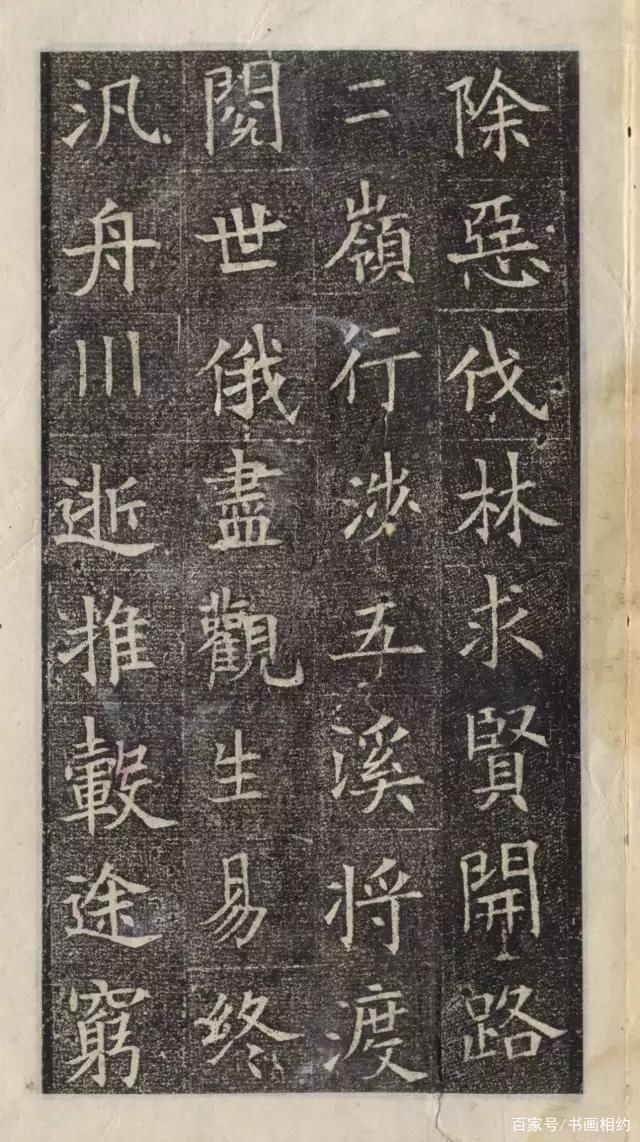 除惡伐林求賢開路
二嶺行涉五溪將渡
閱世俄盡觀生易終
汎舟川逝推轂途窮
百家号/书画相约